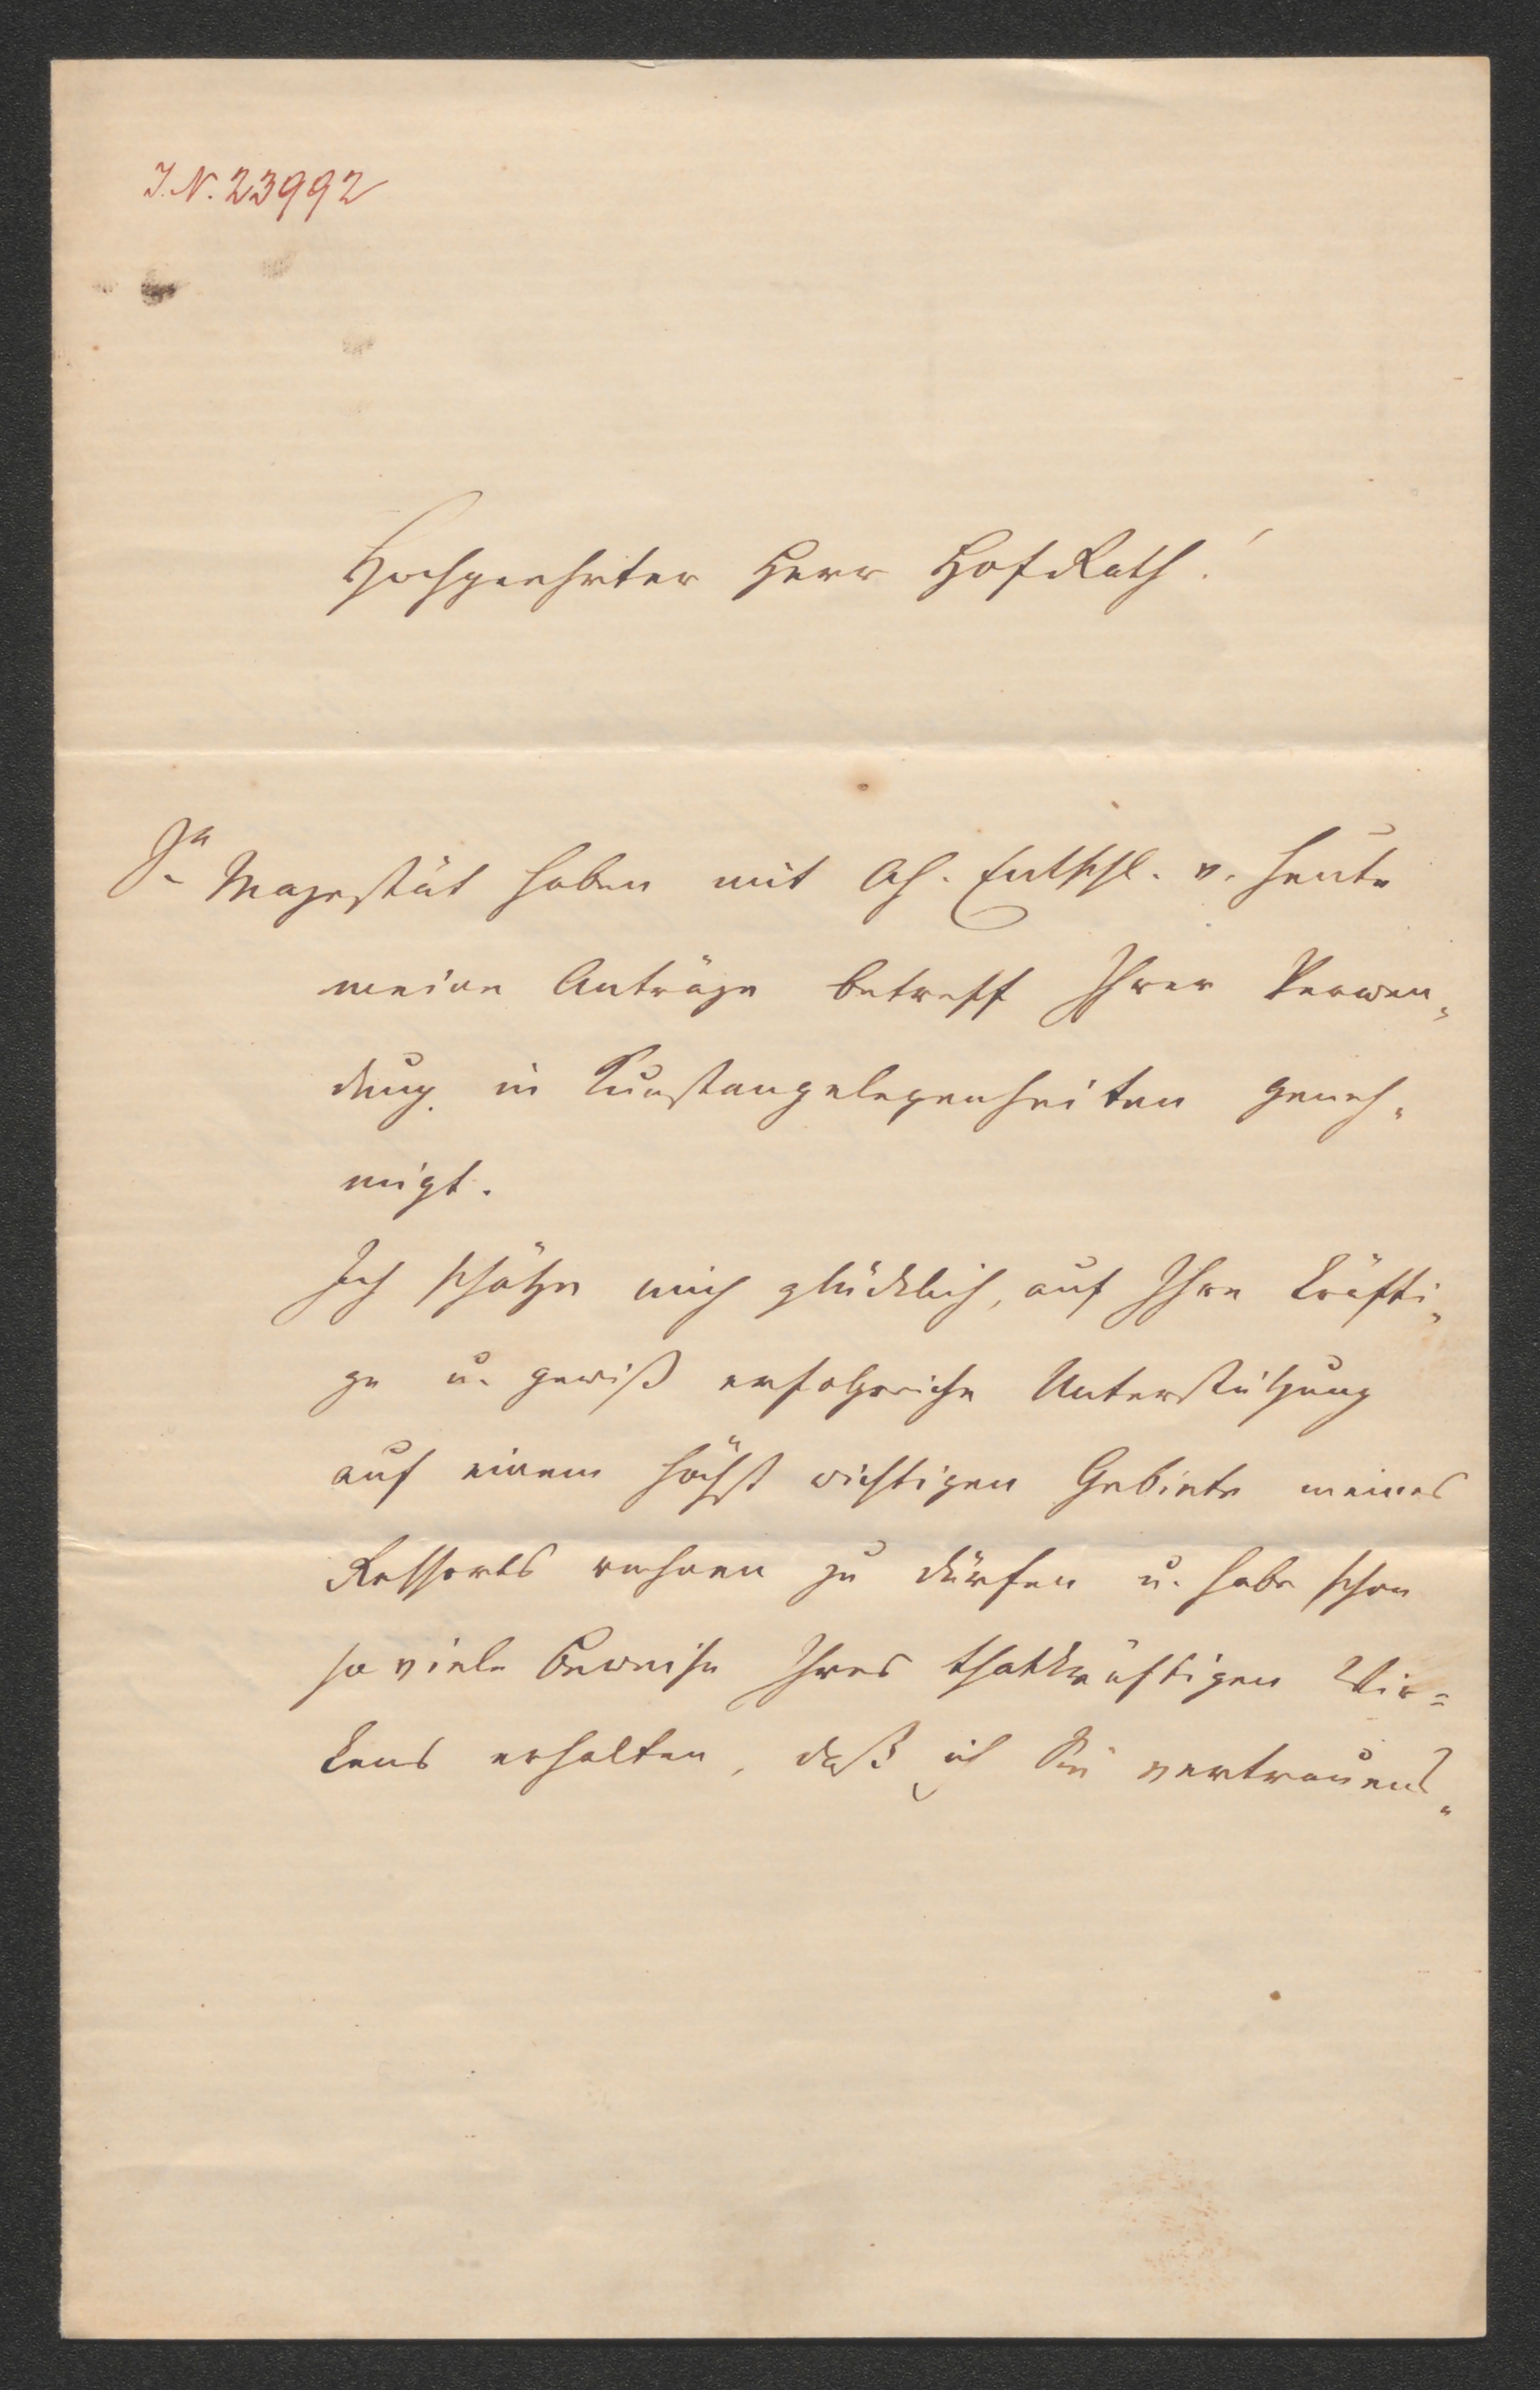 I.N. 23992
Hochgeehrter Herr HofRath!
Se Majestät haben mit Ah. Entschl. v. heute
meine Anträge betreff Ihrer Verwen„
dung in Kunstangelegenheiten geneh„
migt.
Ich schätze mich glücklich, auf Ihre kräfti„
ge u. gewiß erfolgreiche Unterstützung
auf einem höchst wichtigen Gebiete meines
Ressorts rechnen zu dürfen u. habe schon
so viele Beweise Ihres thatkräftigen Wir=
kens erhalten, daß ich Sie vertrauens„